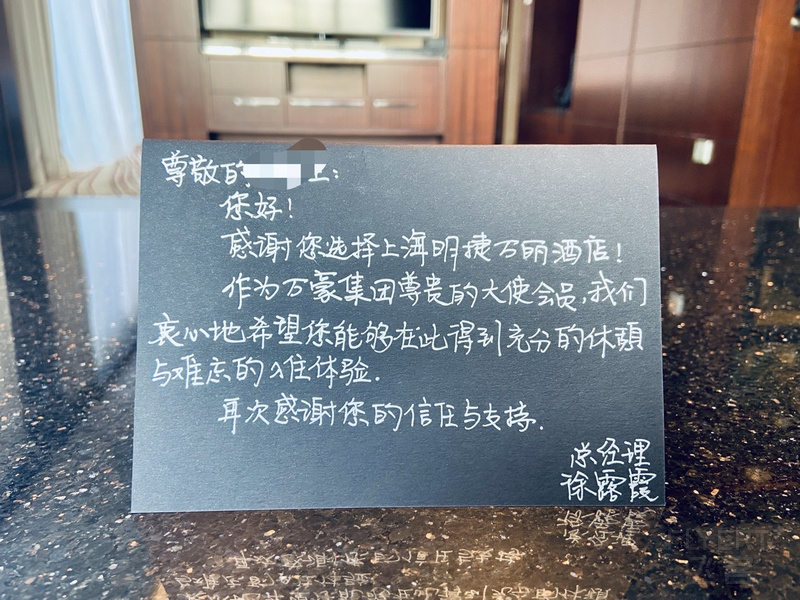 尊敬的 士:
您好!
感谢您选择上海明捷万丽酒店!
作为万豪集团尊贵的大使会员,我们
衷心地希望您能够在此得到充分的休憩
与难忘的入住体验.
再次感谢您的信任与支持.
总经理
徐露霞